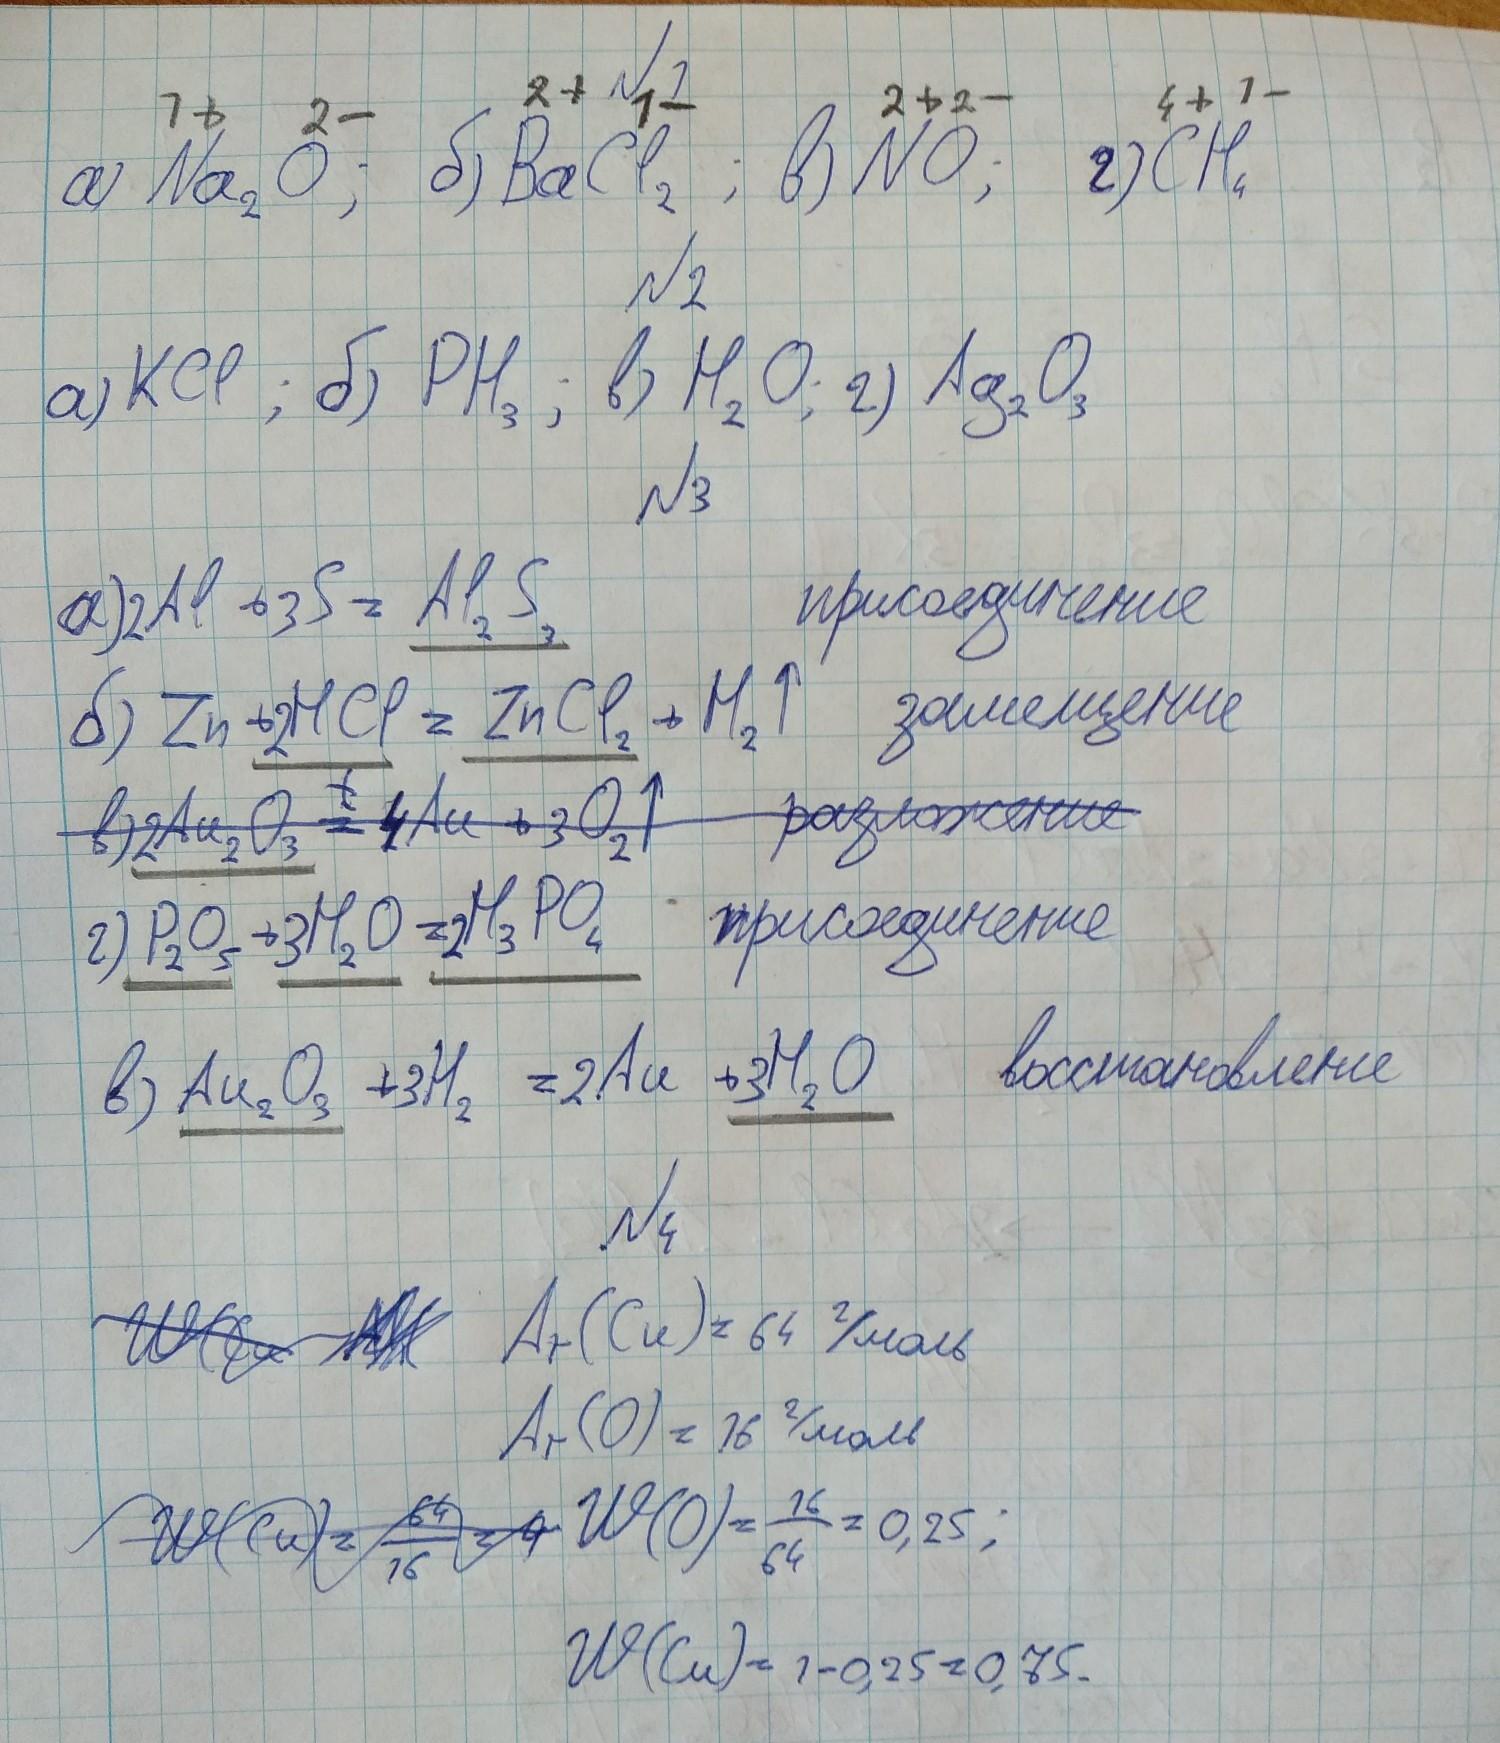 №1
1+ 2− 2+ 1− 2+ 2− 4+ 1−
а) Na₂O; б) BaCl₂; в) NO; г) CH₄
№2
а) KCl; б) PH₃; в) H₂O; г) Ag₂O₃
№3
а) 2Al + 3S = Al₂S₃ присоединение
б) Zn + 2HCl = ZnCl₂ + H₂↑ замещение
в) 2Au₂O₃ t= 4Au + 3O₂↑ разложение
г) P₂O₅ + 3H₂O = 2H₃PO₄ присоединение
в) Au₂O₃ + 3H₂ = 2Au + 3H₂O восстановление
№4
W(Cu Ar(Cu) = 64 г/моль
Ar(O) = 16 г/моль
W(Cu) = 64/16 = W(O) = 16/64 = 0,25;
W(Cu) = 1−0,25 = 0,75.